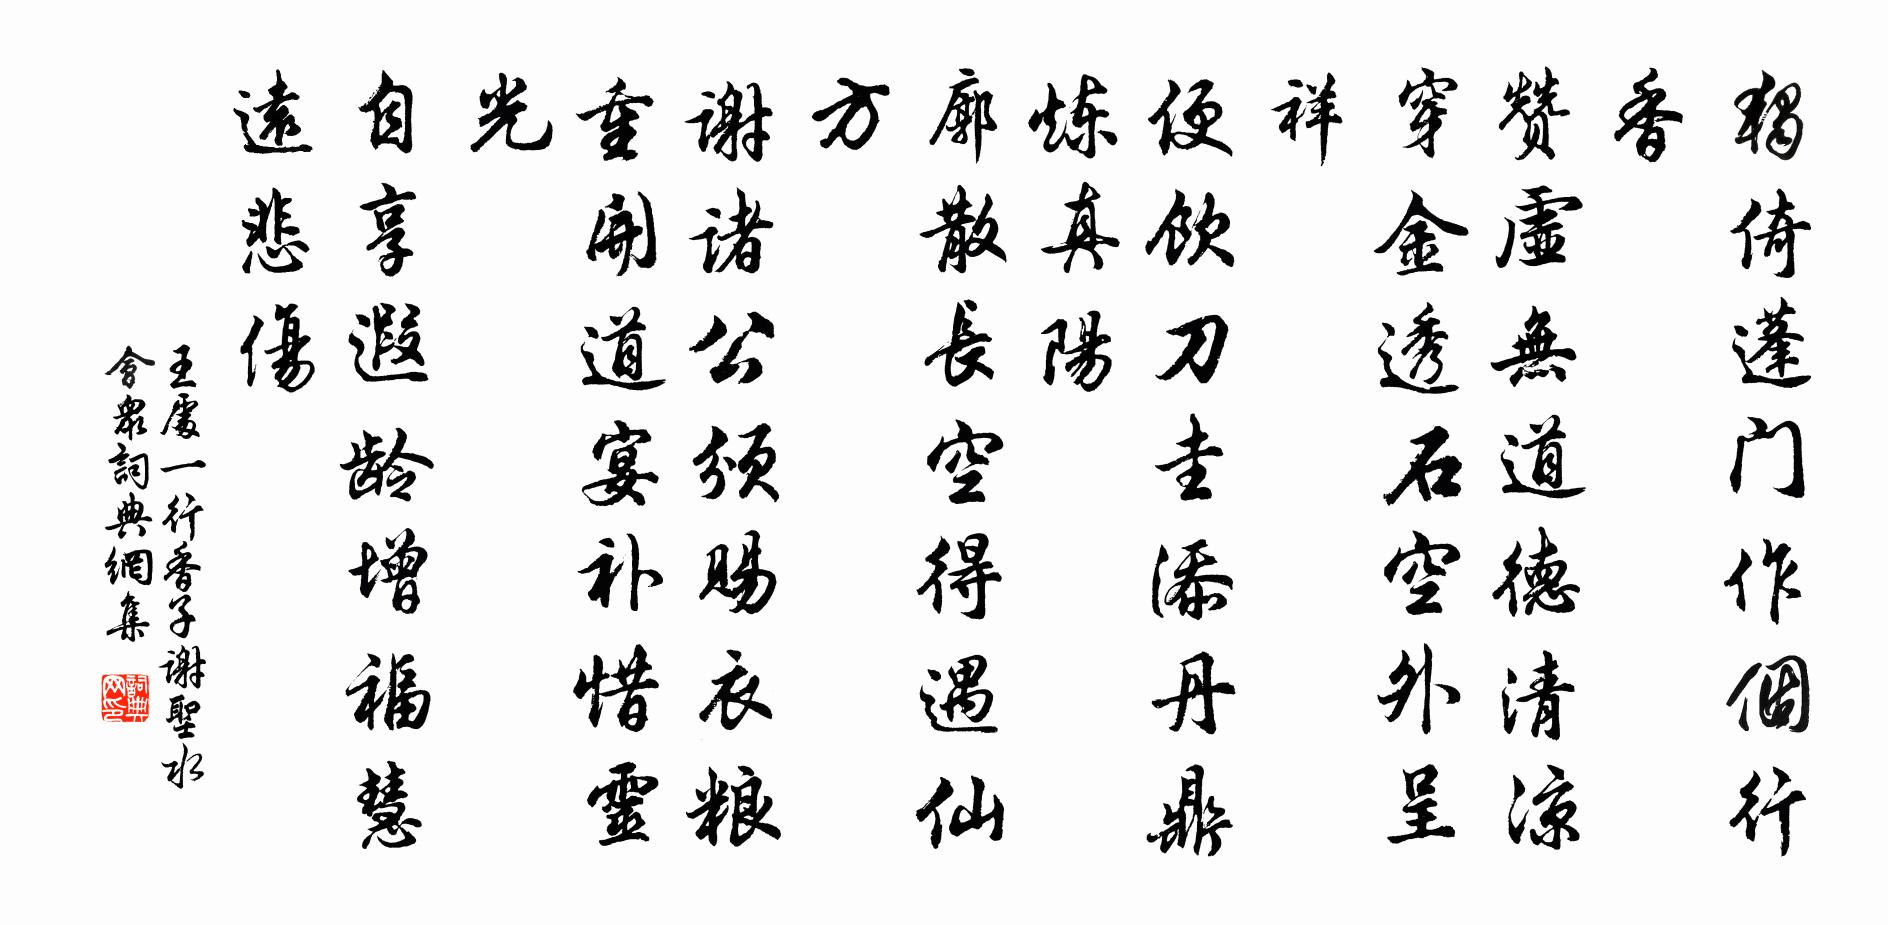 獨倚蓬门作個行
香
赞虛無道德清涼
穿金透石空外呈
祥
便飲刀圭添丹鼎
炼真陽
廓散長空得遇仙
方
謝諸公颁賜衣粮
重開道宴补惜靈
光
自享遐龄增福慧
遠悲傷
王處一行香子謝聖水
會眾詞典網集
詞典网印